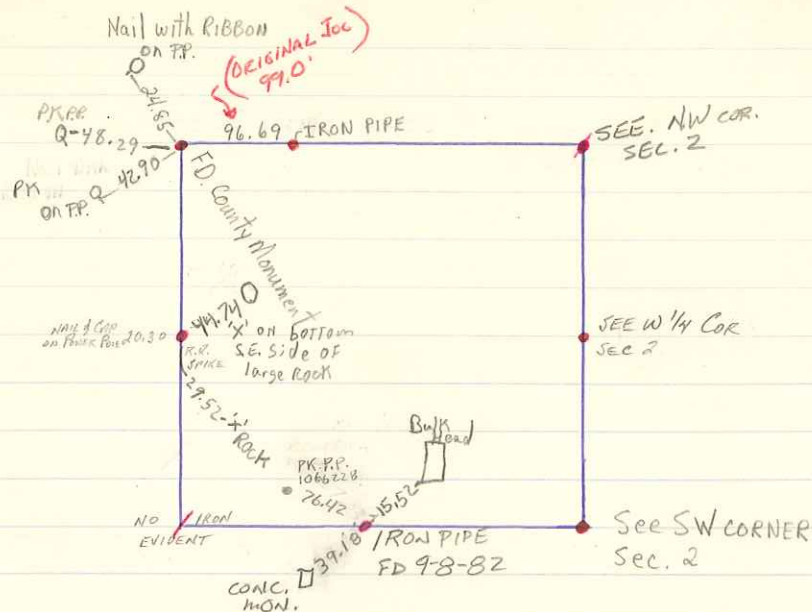 Nail with RIBBON
on P.P.
24.85
(ORIGINAL Joc
99.0')
PK P.P.
Q-48.29
96.69
IRON PIPE
SEE. NW COR.
SEC. 2
PK
on P.P.
42.90
FD. County Monument
NAIL & Cap
on Power Pole 20.30
44.74
'X' on bottom
S.E. Side of
large Rock
R.R.
SPIKE
SEE W 1/4 COR
SEC 2
29.52-'X' ROCK
Bulk
Head
PK P.P.
1066228
76.42
15.52
NO IRON
EVIDENT
IRON PIPE
FD 9-8-82
39.18
CONC.
MON.
See SW CORNER
Sec. 2